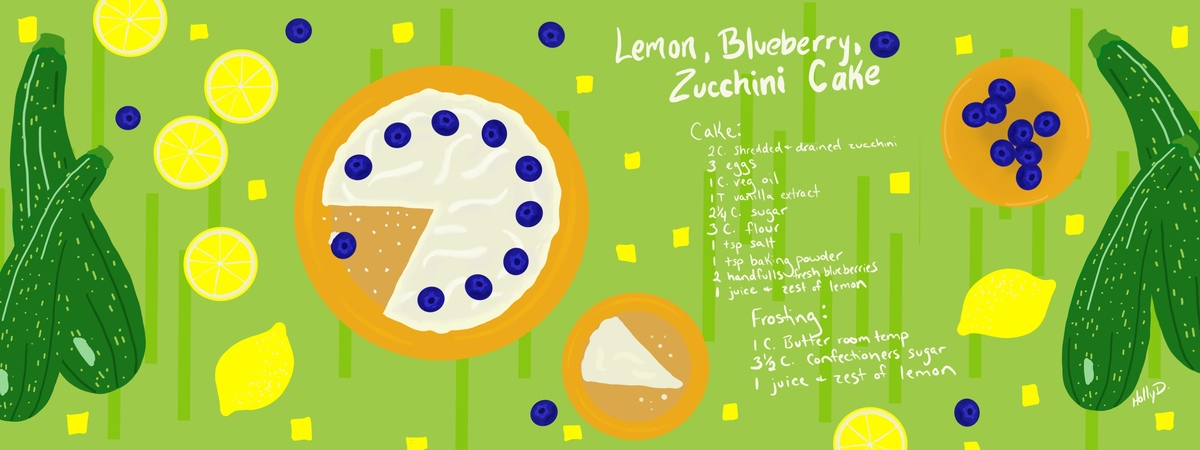 Lemon, Blueberry,
Zucchini Cake
Cake:
2 C. shredded + drained zucchini
3 eggs
1 C. veg oil
1 T vanilla extract
2 1/4 C. sugar
3 C. flour
1 tsp salt
1 tsp baking powder
2 handfulls fresh blueberries
1 juice + zest of lemon
Frosting:
1 C. Butter room temp
3 1/2 C. Confectioners sugar
1 juice + zest of lemon
HollyD.